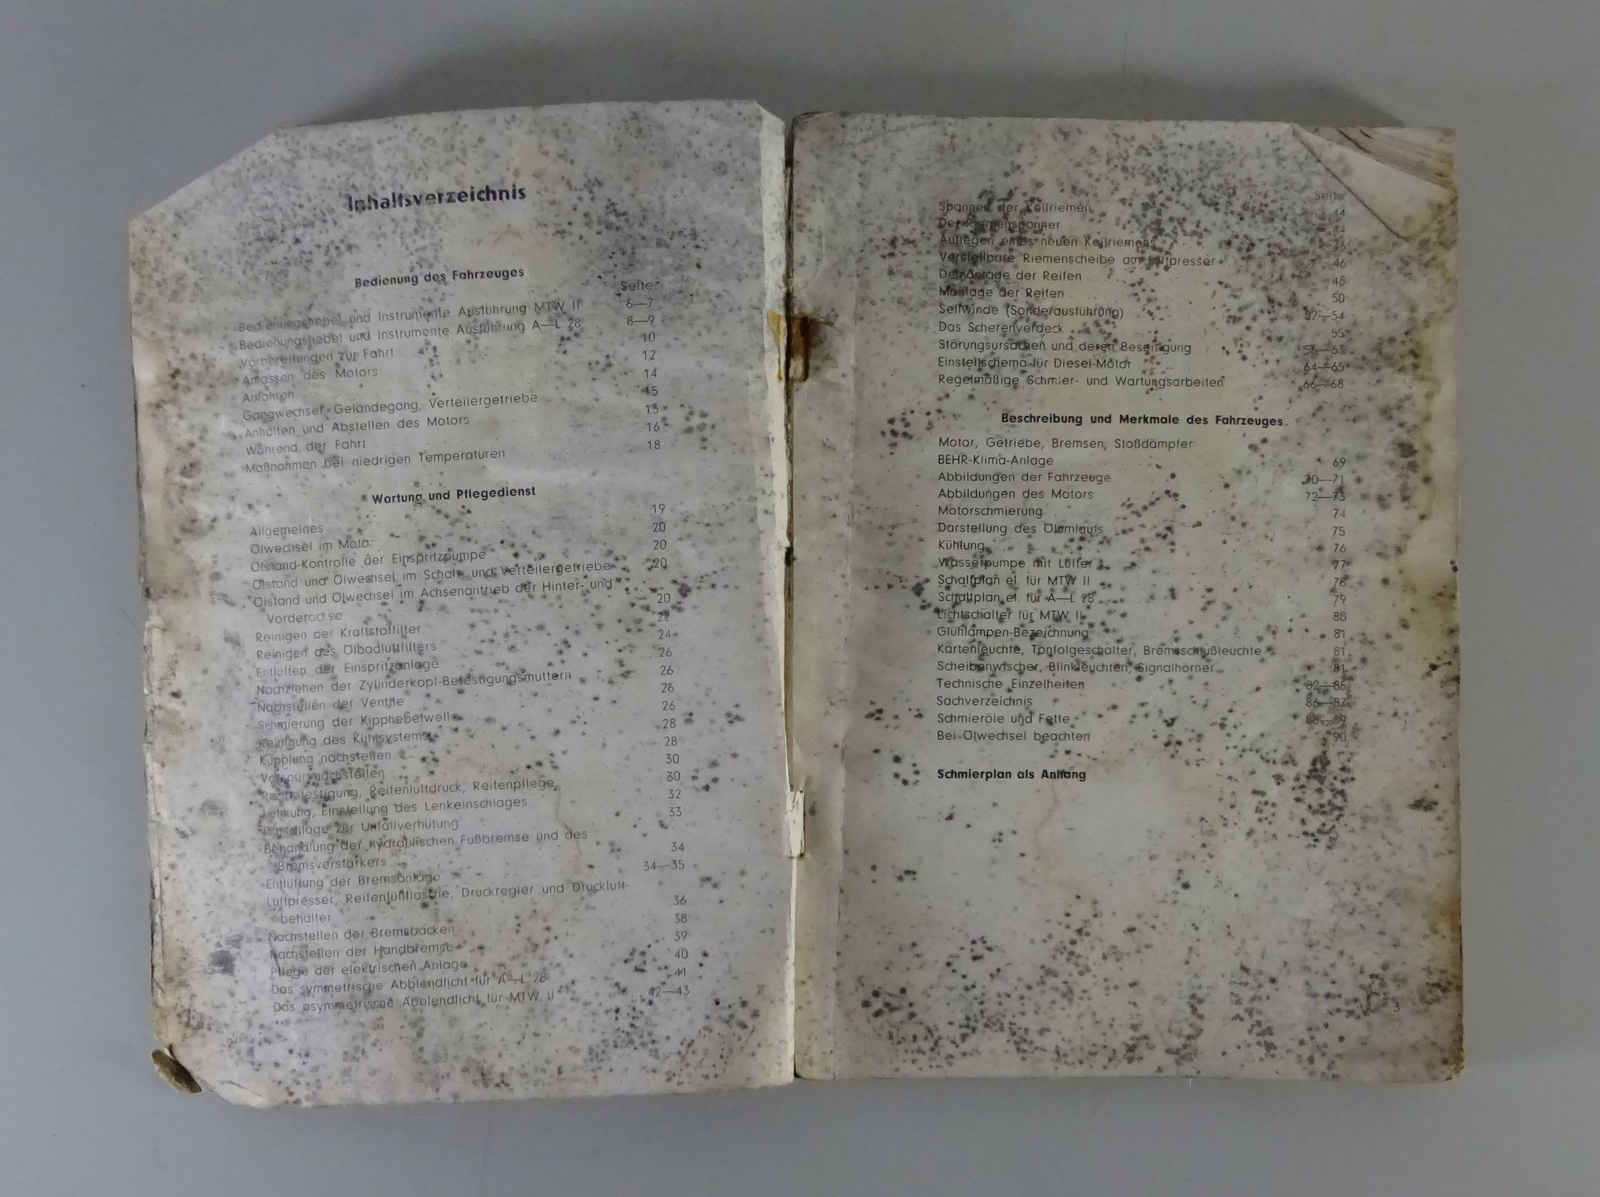 Inhaltsverzeichnis
Bedienung des Fahrzeuges
Seite
Bedienungshebel und Instrumente Ausführung MTW II 6—7
Bedienungshebel und Instrumente Ausführung A—L 28 8—9
Vorbereitungen zur Fahrt 10
Anlassen des Motors 12
Anfahren 14
Gangwechsel, Geländegang, Verteilergetriebe 15
Anhalten und Abstellen des Motors 15
Während der Fahrt 16
Maßnahmen bei niedrigen Temperaturen 18
Wartung und Pflegedienst
Allgemeines 19
Ölwechsel im Motor 20
Ölstand-Kontrolle der Einspritzpumpe 20
Ölstand und Ölwechsel im Schalt- und Verteilergetriebe 20
Ölstand und Ölwechsel im Achsenantrieb der Hinter- und
Vorderachse 20
Reinigen der Kraftstoffilter 22
Reinigen des Ölbadluftfilters 24
Entlüften der Einspritzanlage 26
Nachziehen der Zylinderkopf-Befestigungsmuttern 26
Nachstellen der Ventile 26
Schmierung der Kipphebelwelle 26
Reinigung des Kühlsystems 28
Kupplung nachstellen 28
Vorspur nachstellen 30
Radbefestigung, Reifenluftdruck, Reifenpflege 30
Lenkung, Einstellung des Lenkeinschlages 32
Ratschläge zur Unfallverhütung 33
Behandlung der hydraulischen Fußbremse und des
Bremsverstärkers 34
Entlüftung der Bremsanlage 34—35
Luftpresser, Reifenfüllflasche, Druckregler und Druckluft-
behälter 36
Nachstellen der Bremsbacken 38
Nachstellen der Handbremse 39
Pflege der elektrischen Anlage 40
Das symmetrische Abblendlicht für A—L 28 41
Das asymmetrische Abblendlicht für MTW II 42—43
Seite
Spannen der Keilriemen 44
Der Riemenspanner 44
Auflegen eines neuen Keilriemens
Verstellbare Riemenscheibe am Luftpresser 46
Demontage der Reifen 48
Montage der Reifen 50
Seilwinde (Sonderausführung) 52—54
Das Scherenverdeck 55
Störungsursachen und deren Beseitigung
Einstellschema für Diesel-Motor 64—65
Regelmäßige Schmier- und Wartungsarbeiten 66—68
Beschreibung und Merkmale des Fahrzeuges
Motor, Getriebe, Bremsen, Stoßdämpfer
BEHR-Klima-Anlage 69
Abbildungen der Fahrzeuge 70—71
Abbildungen des Motors 72—73
Motorschmierung 74
Darstellung des Ölumlaufs 75
Kühlung 76
Wasserpumpe mit Lüfter 77
Schaltplan el. für MTW II 78
Schaltplan el. für A—L 28 79
Lichtschalter für MTW II 80
Glühlampen-Bezeichnung 81
Kartenleuchte, Tonfolgeschalter, Bremsschlußleuchte 81
Scheibenwischer, Blinkleuchten, Signalhörner 81
Technische Einzelheiten 82—85
Sachverzeichnis 86—87
Schmieröle und Fette 88—89
Bei Ölwechsel beachten 90
Schmierplan als Anhang
3